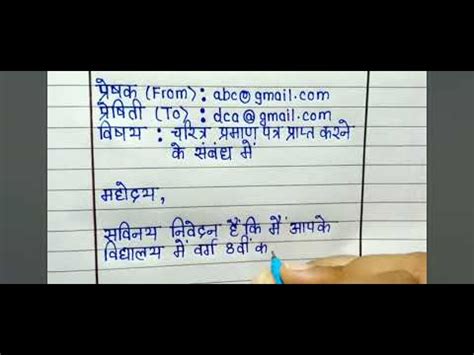 प्रेषक (From) : abc@gmail.com
प्रेषिती (To) : dca@gmail.com
विषय : चरित्र प्रमाण पत्र प्राप्त करने
के संबंध में
महोदय,
सविनय निवेदन हैं कि मैं आपके
विद्यालय में वर्ग 8वीं क